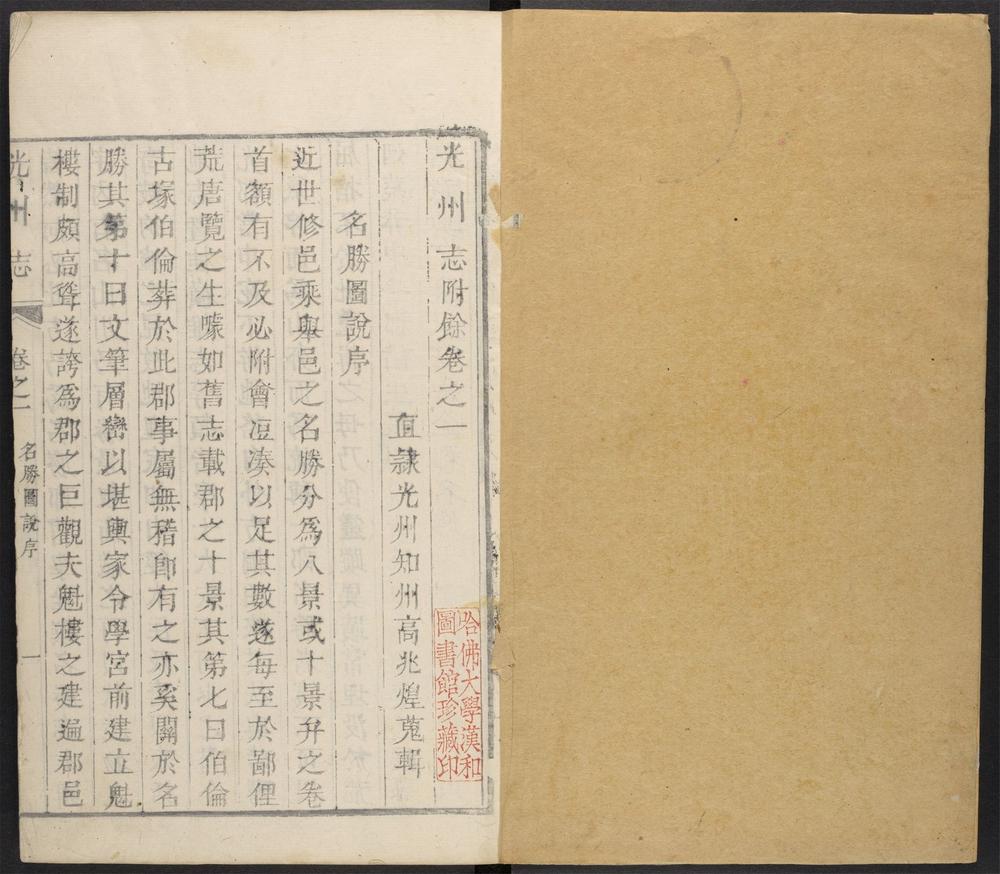 光州志附餘卷之一
直隷光州知州高兆煌蒐輯
名勝圖說序
近世修邑乘舉邑之名勝分爲八景或十景弁之卷
首額有不及必附會湊以足其數遂每至於鄙俚
荒唐覽之生噱如舊志載郡之十景其第七曰伯倫
古塚伯倫葬於此郡事屬無稽卽有之亦奚關於名
勝其第十曰文筆層巒以堪輿家令學宮前建立魁
樓制頗高聳遂誇爲郡之巨觀夫魁樓之建遍郡邑
光州志
卷之一
名勝圖說序
一
哈佛大學漢和
圖書館珍藏印